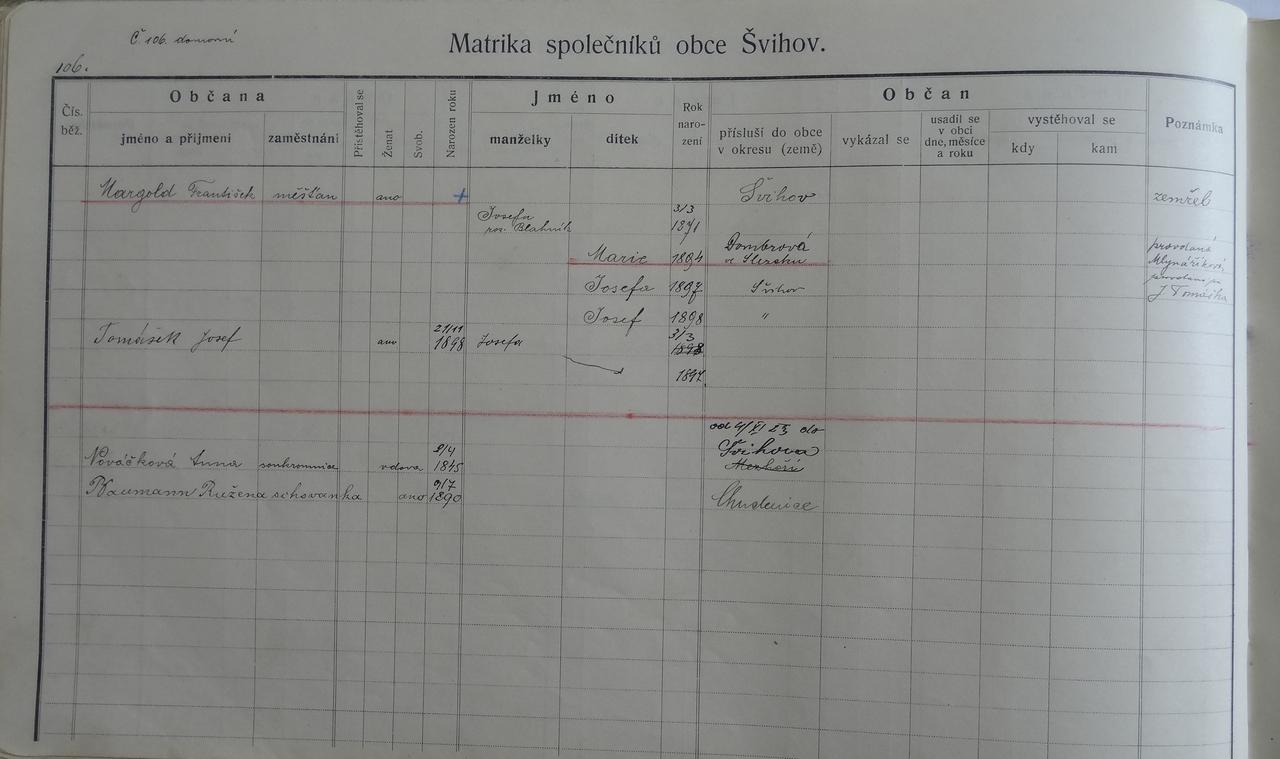 Č. 106. domovní
Matrika společníků obce Švihov.
106.
Čís. běž.
Občana
jméno a příjmení
zaměstnání
Přistěhoval se
Ženat
Svob.
Narozen roku
Jméno
manželky
dítek
Rok naro- zení
Občan
přísluší do obce v okresu (země)
vykázal se
usadil se v obci dne, měsíce a roku
vystěhoval se
kdy
kam
Poznámka
Margold František měšťan ano + Švihov zemřel
Josefa roz. Blahník 3/3 1871
Marie 1894 Dombrová ve Slezsku provdaná Mlynáříková
Josefa 1897 Švihov provdaná za J. Tomáška
Josef 1898 "
Tomášek Josef ano 21/11 1898 Josefa 3/3 1898
1897.
od 4/XI 23 do
Nováčková Anna soukromnice vdova 2/4 1845 Švihova
Baumann Růžena schovanka ano 9/7 1890 Chudenice